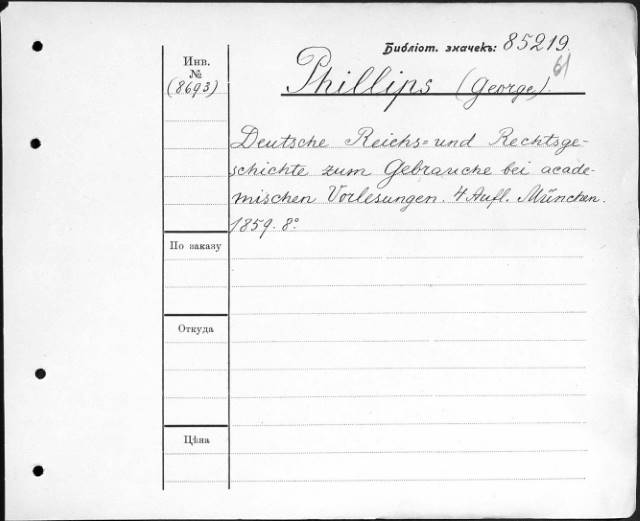 Библіот. значекъ: 85219
61
Инв.
№
(8693)
Phillips (George).
Deutsche Reichs= und Rechtsge-
schichte zum Gebrauche bei acade-
mischen Vorlesungen. 4 Aufl. München.
1859. 8°
По заказу
Откуда
Цѣна